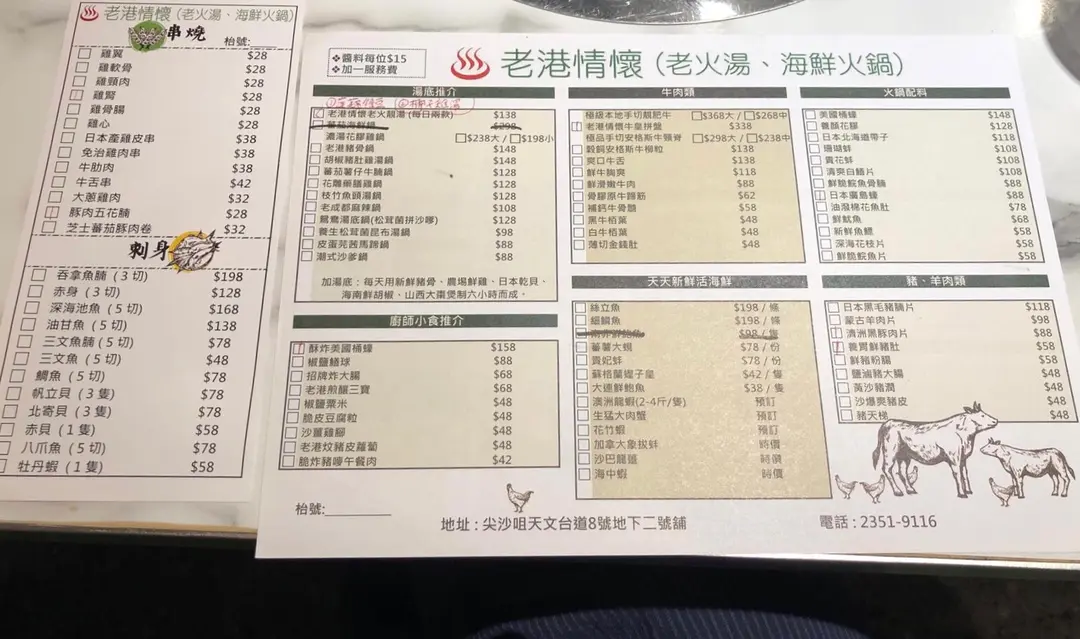 老港情懷(老火湯、海鮮火鍋)
串燒
枱號:
雞翼 $28
雞軟骨 $28
雞頸肉 $28
雞腎 $28
雞骨腸 $28
雞心 $28
日本產雞皮串 $38
免治雞肉串 $38
牛肋肉 $38
牛舌串 $42
大蔥雞肉 $32
豚肉五花腩 $28
芝士蕃茄豚肉卷 $32
刺身
吞拿魚腩 (3 切) $198
赤身 (3 切) $128
深海池魚 (5 切) $168
油甘魚 (5 切) $138
三文魚腩 (5 切) $78
三文魚 (5 切) $48
鯛魚 (5 切) $78
帆立貝 (3 隻) $78
北寄貝 (3 隻) $78
赤貝 (1 隻) $58
八爪魚 (5 切) $78
牡丹蝦 (1 隻) $58
❖醬料每位$15
❖加一服務費
老港情懷 (老火湯、海鮮火鍋)
湯底推介
老港情懷老火靚湯 (每日兩款) $138
蕃茄海鮮鍋 $298
濃湯花膠雞鍋 $238大 / $198小
老港豬骨鍋 $148
胡椒豬肚雞湯鍋 $148
蕃茄薯仔牛腩鍋 $128
花雕藥膳雞鍋 $128
枝竹魚頭湯鍋 $128
老成都麻辣鍋 $108
鴛鴦湯底鍋(松茸菌拼沙嗲) $128
養生松茸菌昆布湯鍋 $98
皮蛋芫茜馬蹄鍋 $88
潮式沙爹鍋 $88
加湯底：每天用新鮮豬骨、農場鮮雞、日本乾貝、
海南鮮胡椒、山西大棗煲制六小時而成。
廚師小食推介
酥炸美國桶蠔 $158
椒鹽鱔球 $88
招牌炸大腸 $68
老港煎釀三寶 $68
椒鹽粟米 $48
脆皮豆腐粒 $48
沙薑雞腳 $48
老港炆豬皮蘿蔔 $48
脆炸豬嘜午餐肉 $42
牛肉類
極級本地手切靚肥牛 $368大 / $268中
老港情懷牛皇拼盤 $338
極品手切安格斯牛頸脊 $298大 / $238中
穀飼安格斯牛柳粒 $138
爽口牛舌 $138
鮮牛胸爽 $118
鮮滑嫩牛肉 $88
骨膠原牛蹄筋 $62
補鈣牛骨髓 $58
黑牛栢葉 $48
白牛栢葉 $48
薄切金錢肚 $48
天天新鮮活海鮮
絲立魚 $198 / 條
細鱲魚 $198 / 條
南非鮮鮑魚 $98 / 隻
蕃薯大蜆 $78 / 份
貴妃蚌 $78 / 份
蘇格蘭蟶子皇 $42 / 隻
大連鮮鮑魚 $38 / 隻
澳洲龍蝦(2-4斤/隻) 預訂
生猛大肉蟹 預訂
花竹蝦 預訂
加拿大象拔蚌 時價
沙巴龍躉 時價
海中蝦 時價
火鍋配料
美國桶蠔 $148
養顏花膠 $128
日本北海道帶子 $118
珊瑚蚌 $108
貴花蚌 $108
清爽白鱔片 $108
鮮脆鯇魚骨腩 $88
日本廣島蠔 $88
油潑棉花魚肚 $78
鮮魷魚 $68
新鮮魚鰾 $58
深海花枝片 $58
鮮脆鯇魚片 $58
豬、羊肉類
日本黑毛豬腩片 $118
蒙古羊肉片 $98
清洲黑豚肉片 $88
養胃鮮豬肚 $58
鮮豬粉腸 $58
鹽滷豬大腸 $48
黃沙豬潤 $48
沙爆爽豬皮 $48
豬天梯 $48
枱號:
地址：尖沙咀天文台道8號地下二號舖
電話：2351-9116